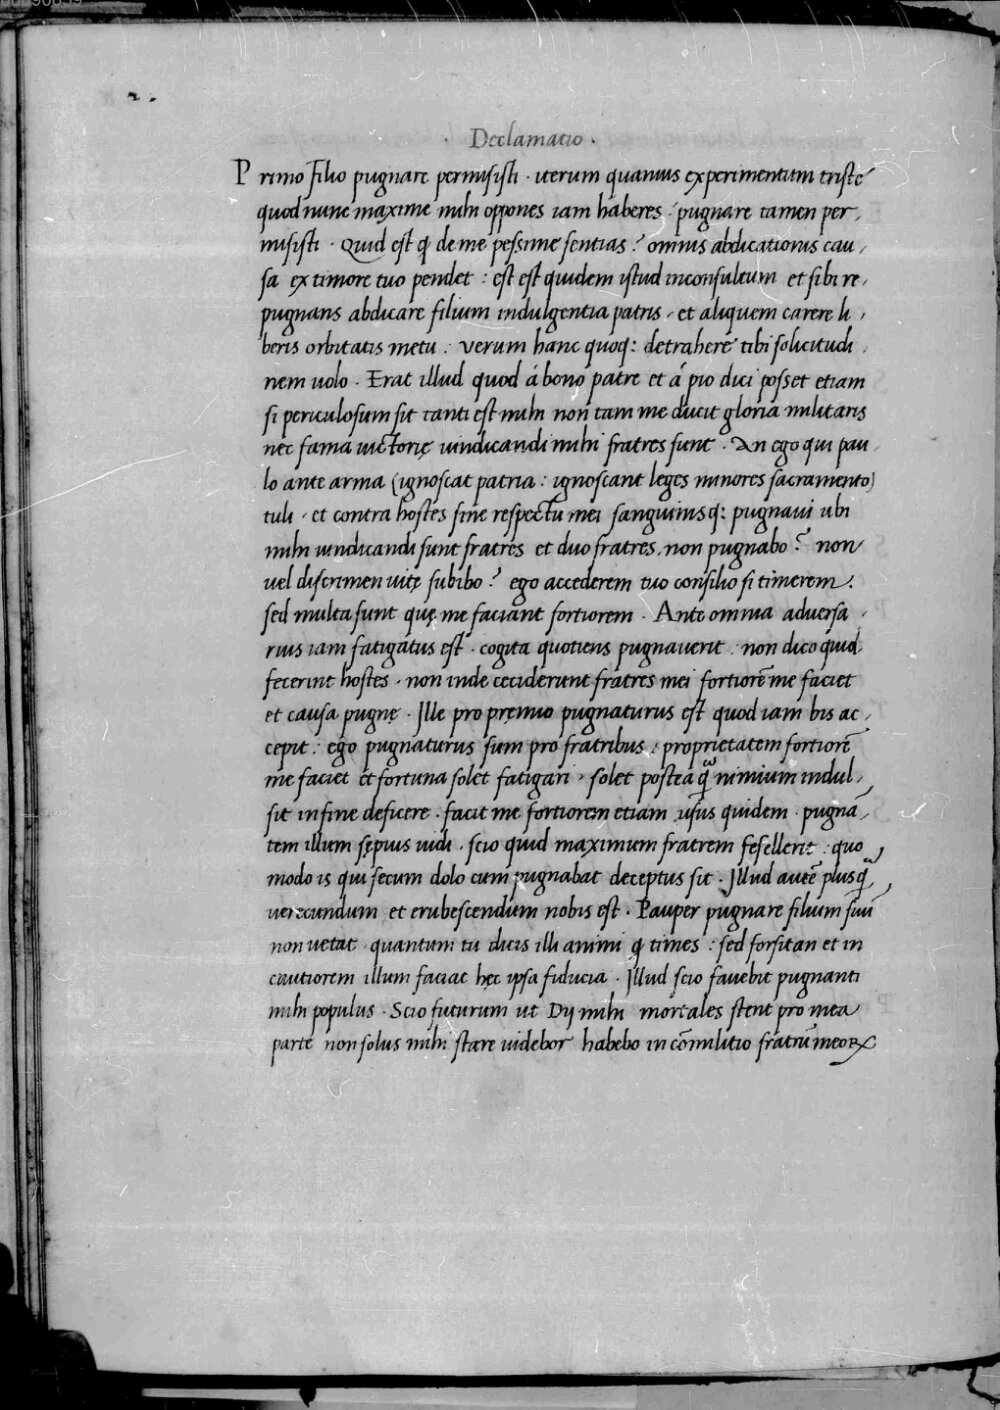 · Declamatio ·
Primo filio pugnare permisisti · iterum quamuis experimentum triste
quod nunc maxime mihi oppones iam haberes · pugnare tamen per,
misisti · Quid est ꝙ de me pessime sentias ? omnis abdicationis cau,
sa ex timore tuo pendet : est est quidem istud inconsultum et sibi re,
pugnans abdicare filium indulgentia patris · et aliquem carere li,
beris orbitatis metu : verum hanc quoq: detrahere tibi solicitudi
nem uolo · Erat illud quod á bono patre et á pio dici posset etiam
si periculosum sit tanti est mihi non tam me ducit gloria militaris
nec fama uictorię uindicandi mihi fratres sunt · An ego qui pau
lo ante arma (ignoscat patria : ignoscant leges minores sacramento)
tuli · et contra hostes sine respectu mei sanguinis q: pugnaui ubi
mihi uindicandi sunt fratres et duo fratres, non pugnabo ? non
uel discrimen uitę subibo ? ego accederem tuo consilio si timerem :
sed multa sunt quę me faciant fortiorem · Ante omnia aduersa,
rius iam fatigatus est · cogita quotiens pugnauerit : non dico quid
fecerint hostes · non inde ceciderunt fratres mei fortiorē me faciet
et causa pugnę · Ille pro pręmio pugnaturus est quod iam bis ac,
cepit : ego pugnaturus sum pro fratribus : proprietatem fortiorē
me faciet et fortuna solet fatigari · solet postea q̃ nimium indul,
sit in fine deficere · facit me fortiorem etiam usus quidem · pugnā,
tem illum sępius uidi · scio quid maximum fratrem fefellerit : quo,
modo is qui secum dolo cum pugnabat deceptus sit · Illud autē plusq̃,
uerecundum et erubescendum nobis est · Pauper pugnare filium suū
non uetat · quantum tu dicis illi animi ꝙ times : sed forsitan et in
cautiorem illum faciat hęc ipsa fiducia · Illud scio fauebit pugnanti
mihi populus · Scio futurum ut Dij mihi mortales stent pro mea
parte non solus mihi stare uidebor habebo in cōmilitio fratrū meoꝝ